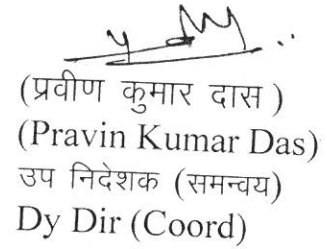 (प्रवीण कुमार दास )
(Pravin Kumar Das)
उप निदेशक (समन्वय)
Dy Dir (Coord)